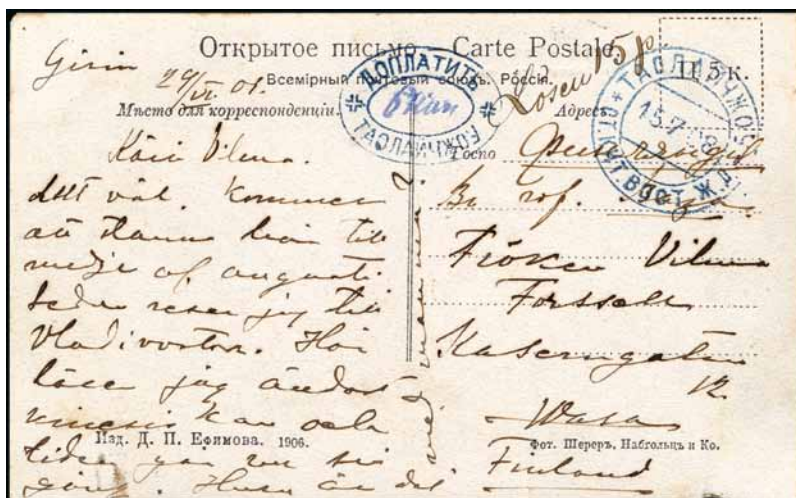 Открытое письмо. Carte Postale.
Всемірный почтовый союзъ. Россія.
Мѣсто для корреспонденціи. Адресъ.
Girin 29/VI 08.
ДОПЛАТИТЬ
ТАОЛАЙЧЖОУ
Losen 15 p.
П 5 к.
ТАОЛАЙЧЖОУ
15.7.08
КИТ. ВОСТ. Ж. Д.
Kära Vilma.
allt väl. Kommer
att stanna här till
medje af augusti
sedan reser jag till
Vladivostok. Här
läser jag endast
kinesiska och
tiden går
Госпо
Въ гор.
Fröken Vilma
Forssell
Kaserngatan
12.
Wasa
Finland
Изд. Д. П. Ефимова. 1906.
Фот. Шереръ, Набгольцъ и Ко.